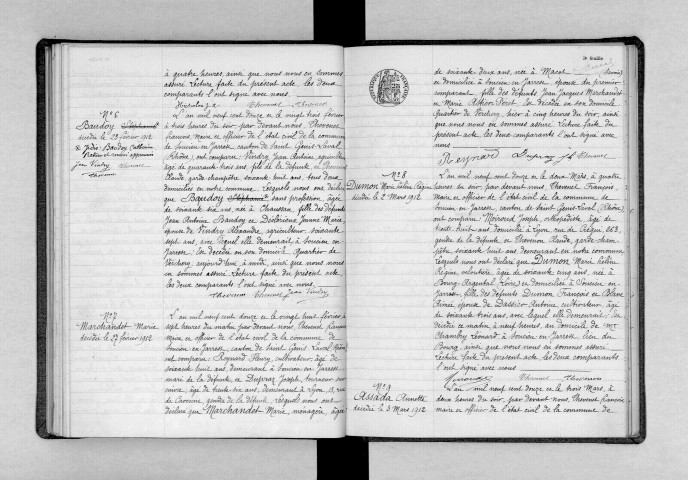 à quatre heures, ainsi que nous nous en sommes
assuré. Lecture faite du présent acte, les deux
comparants l'ont signé avec nous.
Thevenet Thevenon
N° 6
Baudoy
décédée le 23 février 1912
L'an mil neuf cent douze et le vingt trois février
à trois heures du soir, par devant nous, Thevenet
François, maire et officier de l'état civil de la commune
de Soucieu en Jarrest, canton de Saint Genis Laval,
Rhône, ont comparu Vindry Jean Antoine, agriculteur
âgé de quarante trois ans, fils de la défunte, et
Claude, garde champêtre, soixante huit ans, tous deux
domiciliés en notre commune. Lesquels nous ont déclaré
que Baudoy sans profession, âgée
de soixante six ans, née à Chaussan, fille des défunts
Jean Antoine Baudoy et Jeanne Marie,
épouse de Vindry Alexandre, agriculteur, soixante
sept ans, avec lequel elle demeurait à Soucieu en
Jarrest, est décédée en son domicile Quartier de
Verchery, aujourd'hui à midi, ainsi que nous nous
en sommes assuré. Lecture faite du présent acte
les deux comparants l'ont signé avec nous.
Thevenon Thevenet Jean Vindry
N° 7
Marchandet Marie
décédée le 27 février 1912
L'an mil neuf cent douze et le vingt huit février à
sept heures du matin par devant nous, Thevenet François
Maire et officier de l'état civil de la commune de
Soucieu en Jarrest, canton de Saint Genis Laval, Rhône,
ont comparu : Reynard Fleury, cultivateur, âgé de
soixante huit ans, demeurant à Soucieu en Jarrest,
mari de la défunte, et Dupraz Joseph, tourneur sur
cuivre, âgé de trente six ans, demeurant à Lyon,
rue de gendre de la défunte, lesquels nous ont
déclaré que Marchandet Marie, ménagère, âgée
de soixante deux ans, née à Macot (Savoie)
et domiciliée à Soucieu en Jarrest, épouse du premier
comparant, fille des défunts Jean Jacques Marchandet
et Marie est décédée en son domicile
Quartier de Verchery, hier à cinq heures du soir, ainsi
que nous nous en sommes assuré. Lecture faite du
présent acte, les deux comparants l'ont signé avec
nous
Reynard Dupraz Jh Thevenet
N° 8
Dumon Marie Hélène Régine
décédée le 2 Mars 1912
L'an mil neuf cent douze et le deux Mars, à quatre
heures du soir par devant nous Thevenet François,
Maire et officier de l'état civil de la commune de
Soucieu en Jarrest, canton de Saint Genis Laval, (Rhône),
ont comparu : Moiroud Joseph, orthopédiste, âgé de
trente huit ans domicilié à Lyon, rue de Créqui
gendre de la défunte et Thevenon Claude, garde cham-
pêtre, soixante huit ans, demeurant en notre commune
Lesquels nous ont déclaré que Dumon Marie Hélène
Régine, veloutière, âgée de soixante cinq ans, née à
Bourg-Argental (Loire), et domiciliée à Soucieu en-
Jarrest, fille des défunts Dumon François et Blanc
épouse de Antoine, cultivateur, âgé
de soixante trois ans, avec lequel elle demeurait, est
décédée ce matin à neuf heures, au domicile de Mr
Chambry Léonard à Soucieu en Jarrest, lieu du
Bourg, ainsi que nous nous en sommes assuré.
Lecture faite du présent acte, les deux comparants
l'ont signé avec nous
Thevenet Thevenon
N° 9
Assada Annette
décédée le 3 Mars 1912
L'an mil neuf cent douze et le trois Mars, à
deux heures du soir, par devant nous, Thevenet François
maire et officier de l'état civil de la commune de